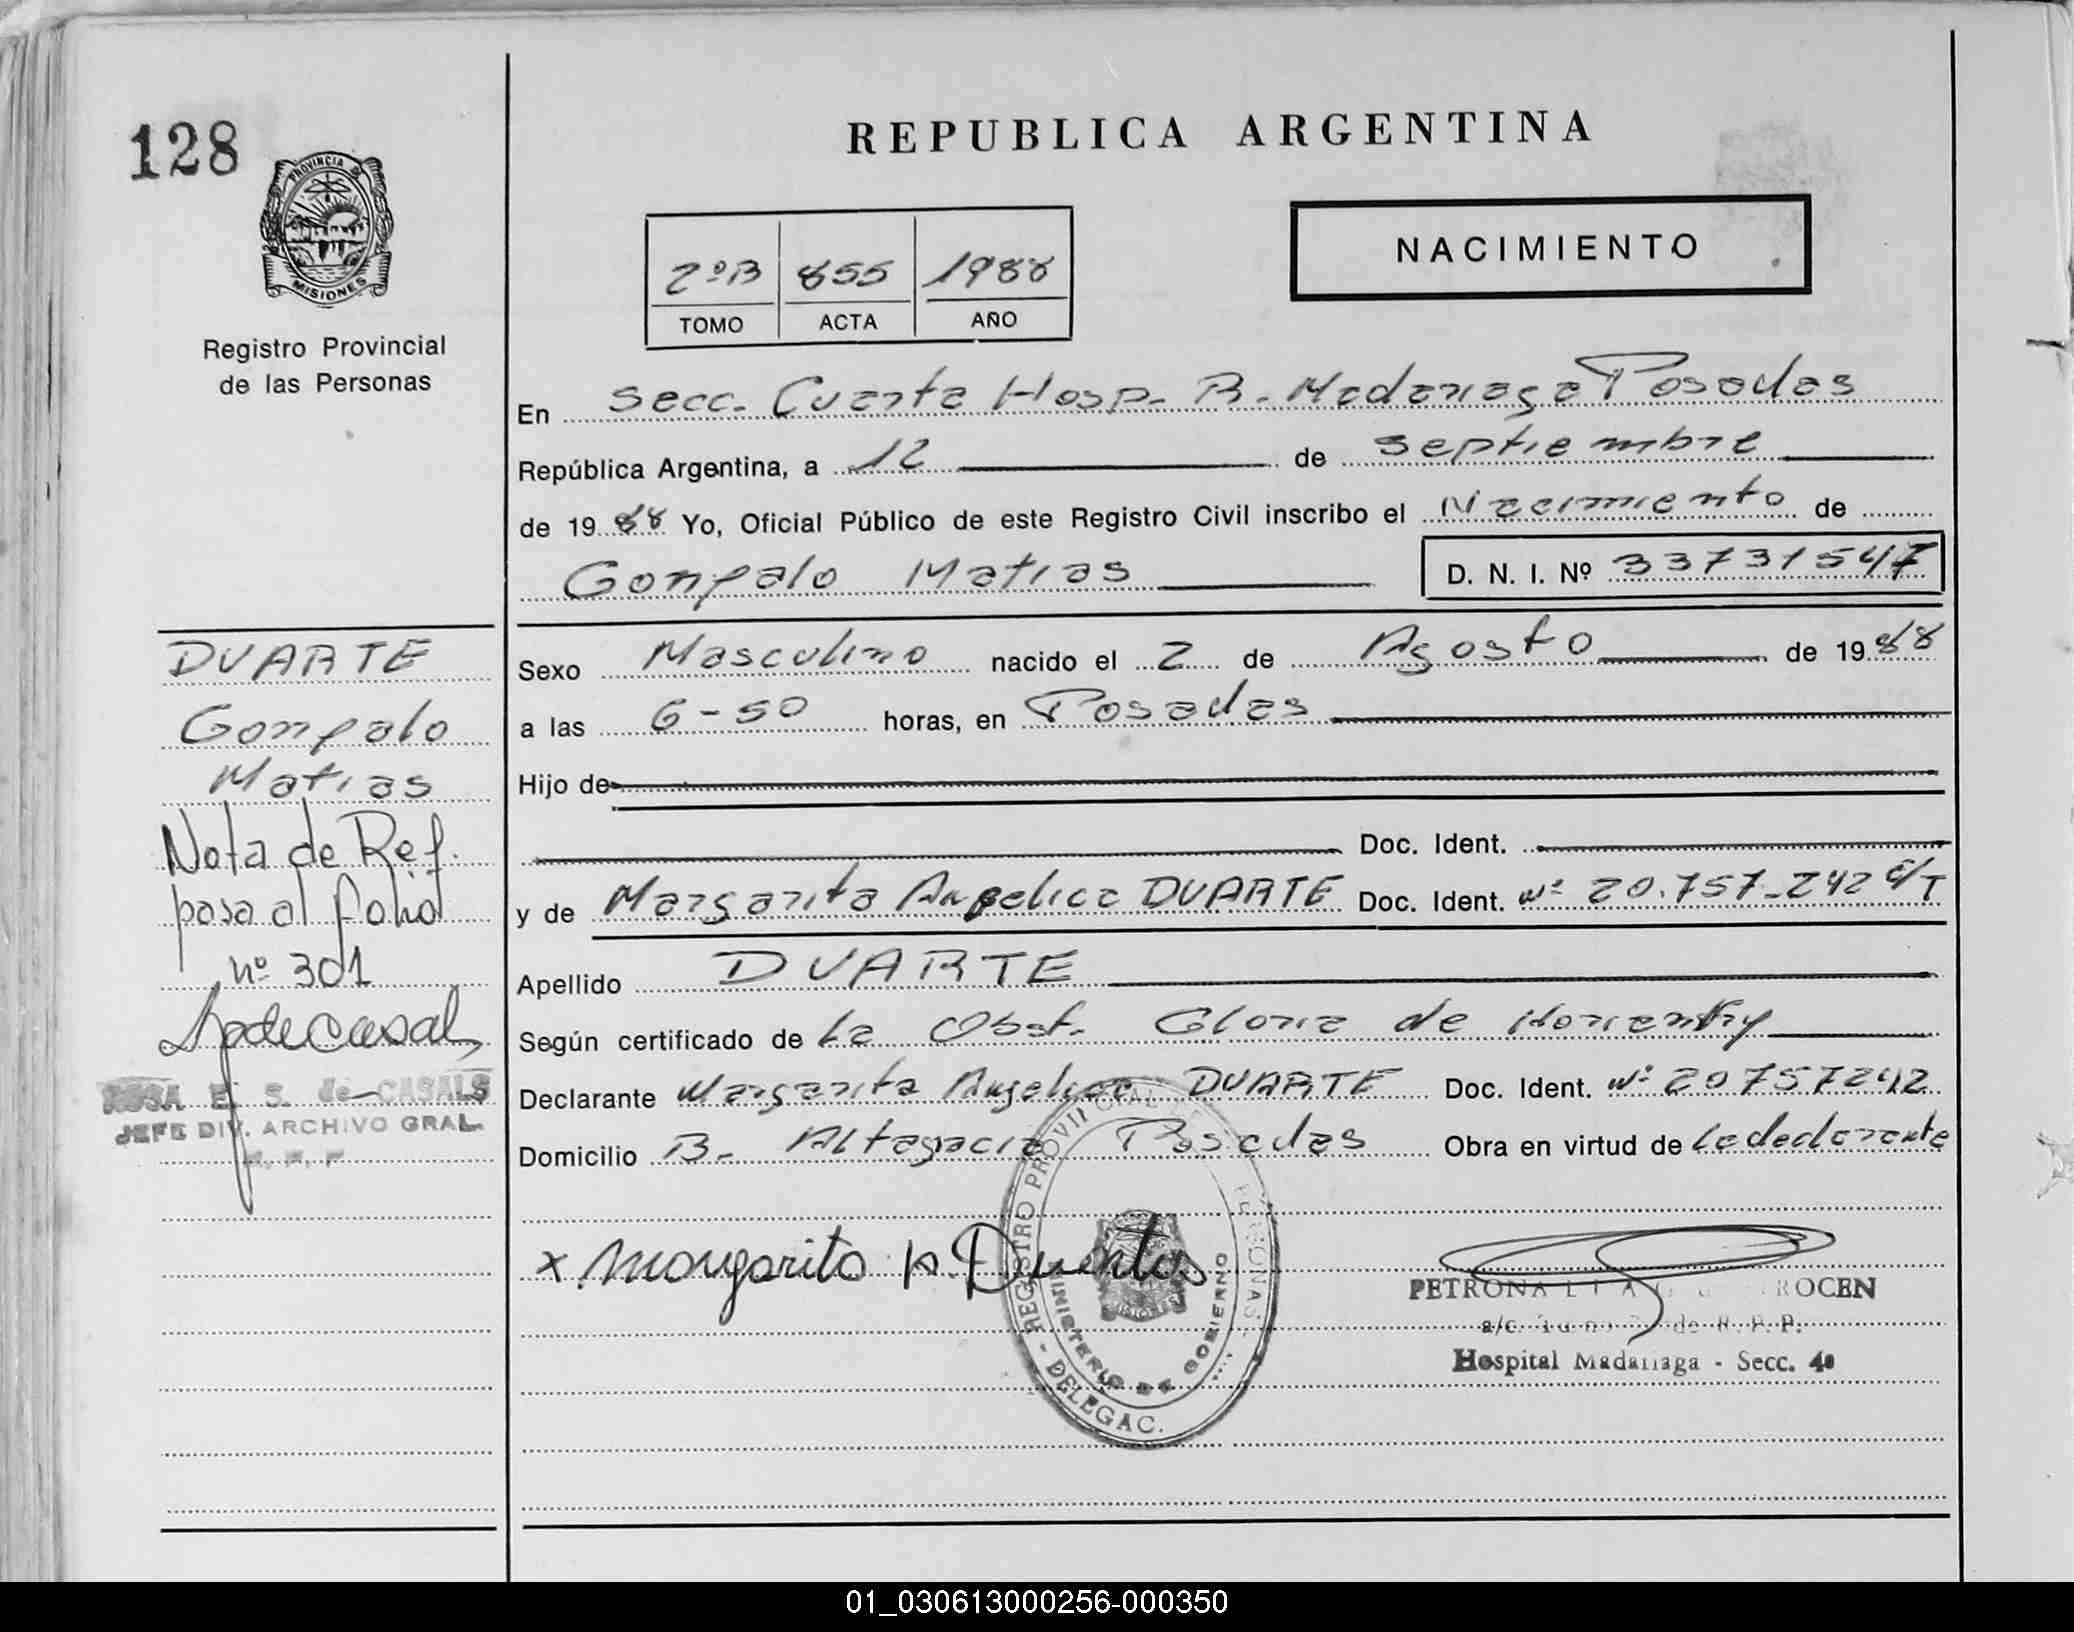 128
PROVINCIA DE
MISIONES
Registro Provincial
de las Personas
REPUBLICA ARGENTINA
2ºB 855 1988
TOMO ACTA AÑO
NACIMIENTO
En Secc. Cuarta Hosp. R. Madariaga Posadas
República Argentina, a 12 de septiembre
de 1988 Yo, Oficial Público de este Registro Civil inscribo el Nacimiento de
Gonzalo Matias D. N. I. Nº 33731547
DUARTE
Gonzalo
Matias
Nota de Ref.
pasa al folio
nº 301
ROSA E. S. de CASALS
JEFE DIV. ARCHIVO GRAL.
Sexo Masculino nacido el 2 de Agosto de 1988
a las 6-50 horas, en Posadas
Hijo de
Doc. Ident.
y de Margarita Angelica DUARTE Doc. Ident. Nº 20.757.242 C/T
Apellido DUARTE
Según certificado de La Obst. Gloria de
Declarante Margarita Angelica DUARTE Doc. Ident. Nº 20757242
Domicilio B. Altagracia Posadas Obra en virtud de la declarante
x Margarita A. Duarte
REGISTRO PROVINCIAL DE PERSONAS - DELEGAC.
MINISTERIO DE GOBIERNO
PETRONA
Hospital Madariaga - Secc. 4a
01_030613000256-000350